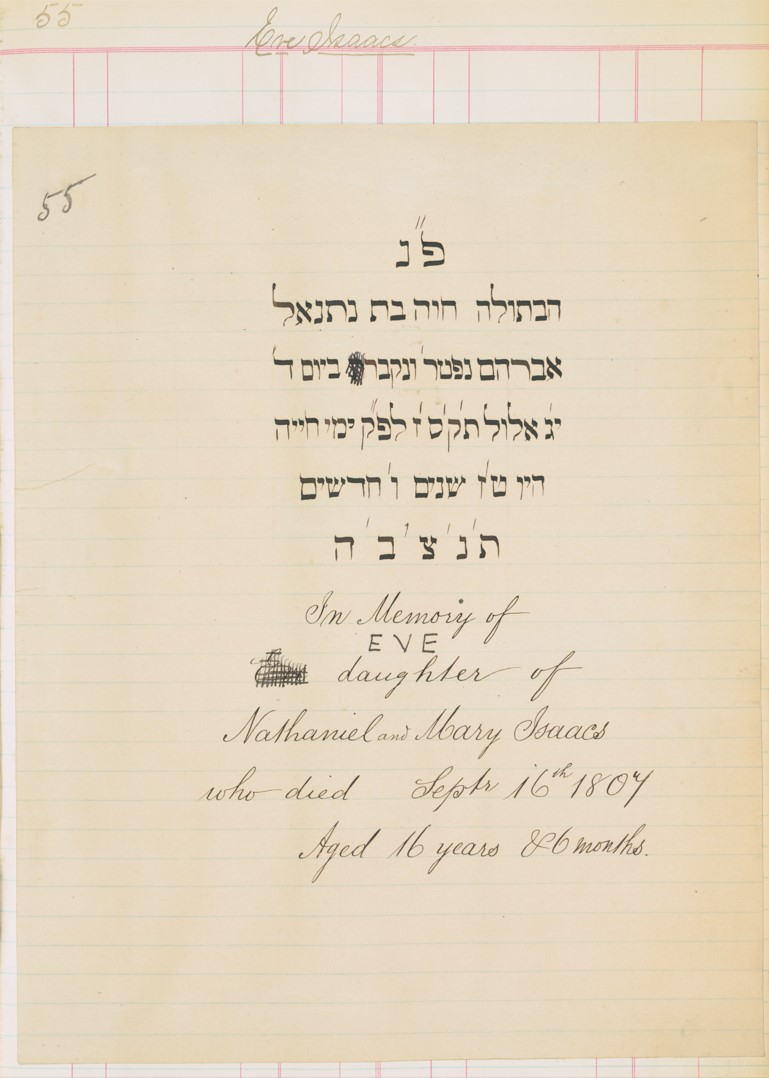 55
Eve Isaacs.
55
פ"נ
הבתולה חוה בת נתנאל
אברהם נפטר' ונקבר' ביום ד'
י'ג אלול ת'ק'ס'ז לפ"ק ימי חייה
היו ט'ז שנים ו' חדשים
ת'נ'צ'ב'ה
In Memory of
EVE
daughter of
Nathaniel and Mary Isaacs
who died Septr 16th 1807
Aged 16 years & 6 months.